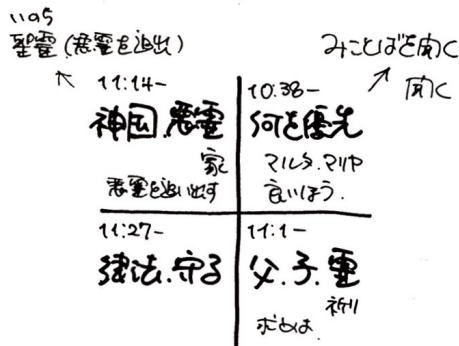 いのり
聖霊(悪霊を追出)
みことばを聞く
聞く
11:14-
神国.悪霊
家
悪霊を追い出す
10:38-
何を優先
マルタ.マリヤ
良いほう.
11:27-
律法.守る
11:1-
父.子.霊
祈り
求めよ.